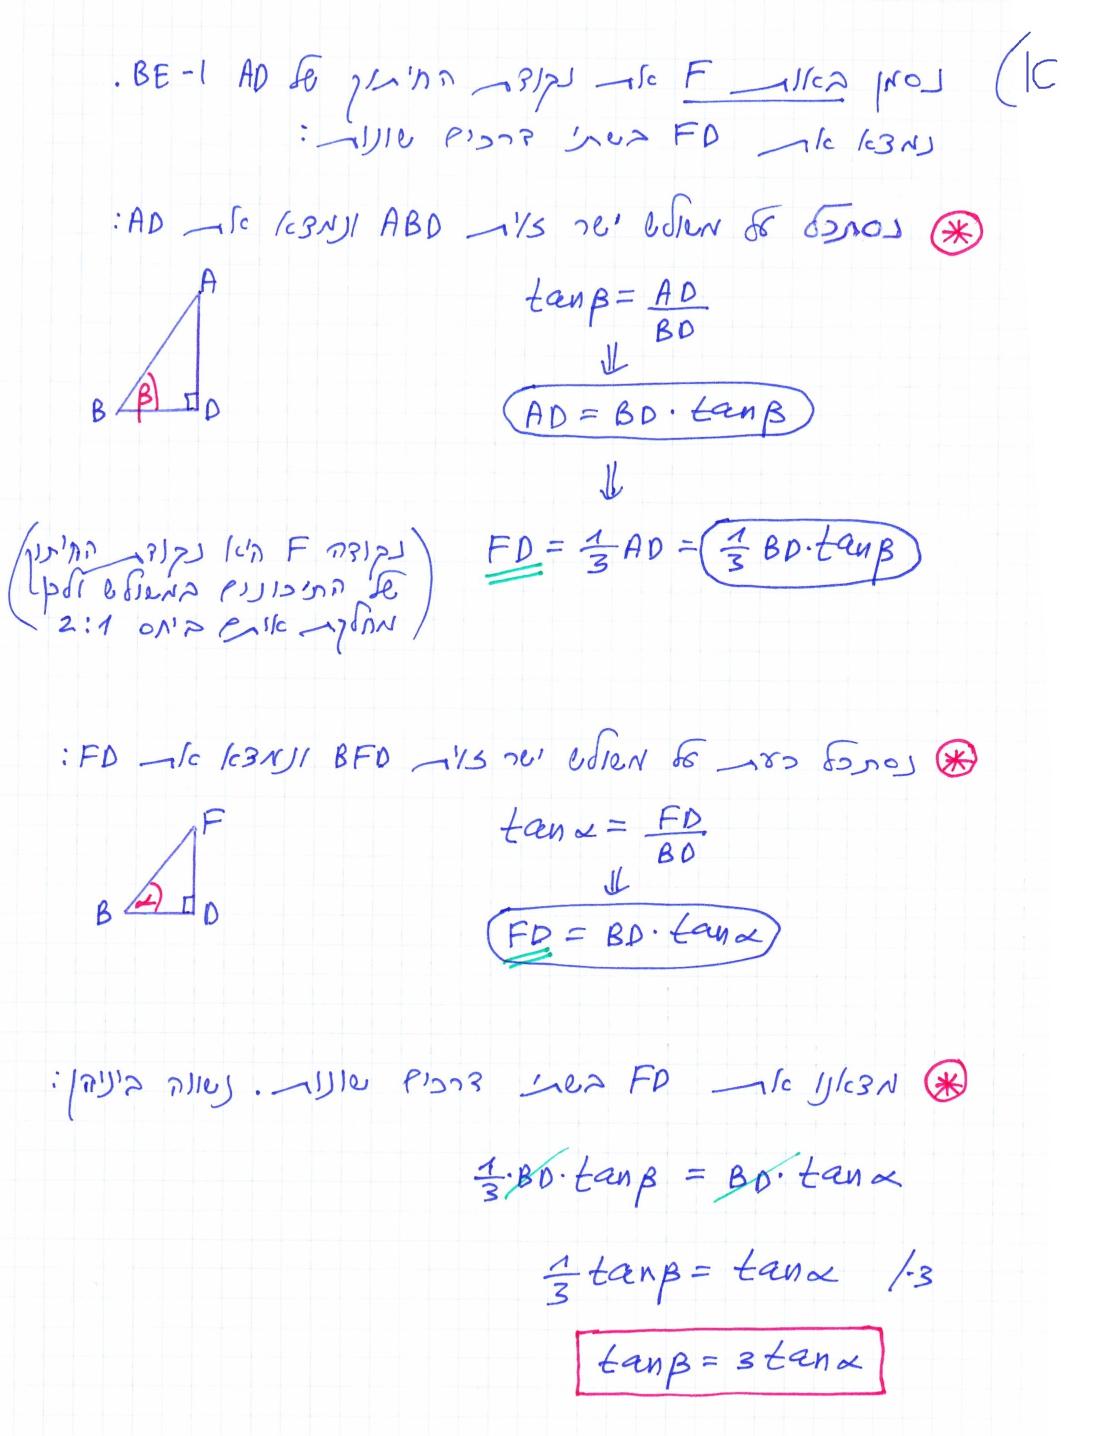 א) נסמן באות F את נקודת החיתוך של AD ו-BE.
נמצא את FD בשתי דרכים שונות:
נסתכל על משולש ישר זוית ABD ונמצא את AD:
A
B β D
tanβ = AD/BD
⇓
AD = BD · tanβ
⇓
FD = 1/3 AD = 1/3 BD·tanβ
(נקודה F היא נקודת החיתוך
של התיכונים במשולש ולכן
מחלקת אותם ביחס 2:1)
נסתכל כעת על משולש ישר זוית BFD ונמצא את FD:
F
B α D
tanα = FD/BD
⇓
FD = BD · tanα
מצאנו את FD בשתי דרכים שונות. נשווה ביניהן:
1/3 · BD · tanβ = BD · tanα
1/3 tanβ = tanα /·3
tanβ = 3tanα